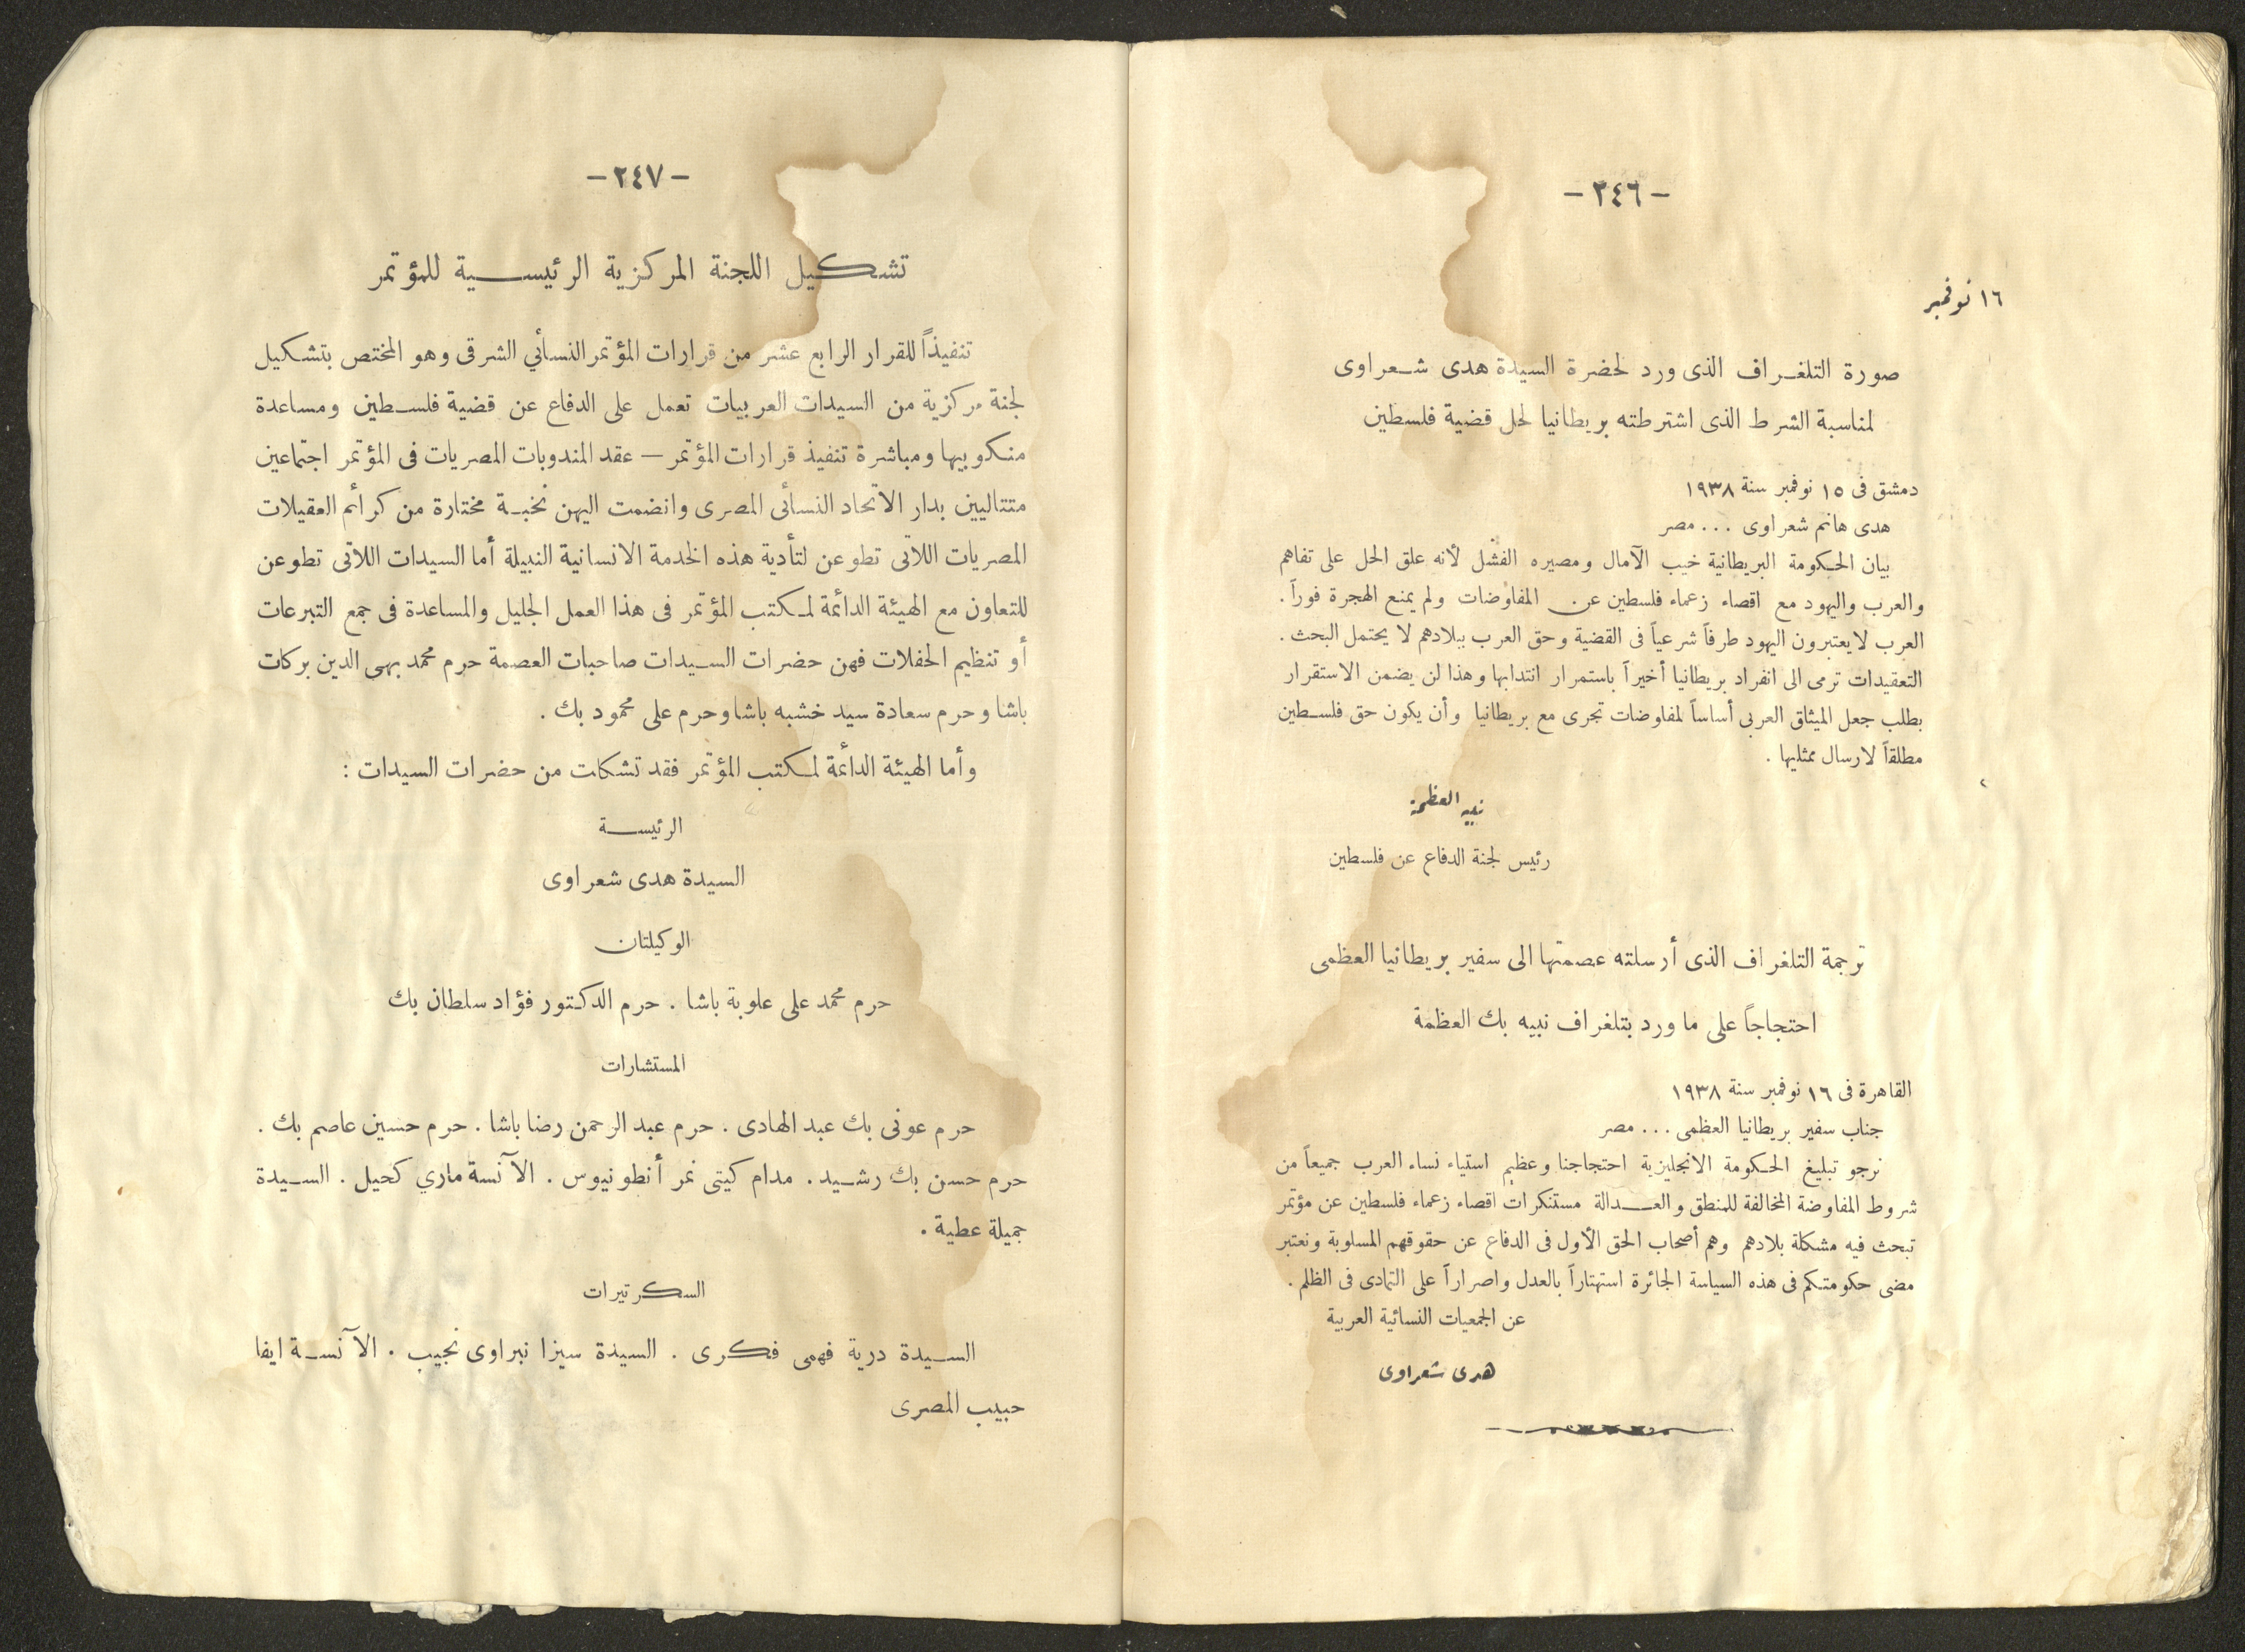 — ٢٤٦ —
١٦ نوفمبر
صورة التلغراف الذى ورد لحضرة السيدة هدى شعراوى
لمناسبة الشرط الذى اشترطته بريطانيا لحل قضية فلسطين
دمشق فى ١٥ نوفمبر سنة ١٩٣٨
هدى هانم شعراوى ... مصر
بيان الحكومة البريطانية خيب الآمال ومصيره الفشل لأنه علق الحل على تفاهم
والعرب واليهود مع اقصاء زعماء فلسطين عن المفاوضات ولم يمنع الهجرة فوراً .
العرب لا يعتبرون اليهود طرفاً شرعياً فى القضية وحق العرب ببلادهم لا يحتمل البحث .
التعقيدات ترمى الى انفراد بريطانيا أخيراً باستمرار انتدابها وهذا لن يضمن الاستقرار
بطلب جعل الميثاق العربى أساساً لمفاوضات تجرى مع بريطانيا وأن يكون حق فلسطين
مطلقاً لارسال ممثليها .
نبيه العظمة
رئيس لجنة الدفاع عن فلسطين
ترجمة التلغراف الذى أرسلته عصمتها الى سفير بريطانيا العظمى
احتجاجاً على ما ورد بتلغراف نبيه بك العظمة
القاهرة فى ١٦ نوفمبر سنة ١٩٣٨
جناب سفير بريطانيا العظمى ... مصر
نرجو تبليغ الحكومة الانجليزية احتجاجنا وعظيم استياء نساء العرب جميعاً من
شروط المفاوضة المخالفة للمنطق والعدالة مستنكرات اقصاء زعماء فلسطين عن مؤتمر
تبحث فيه مشكلة بلادهم وهم أصحاب الحق الأول فى الدفاع عن حقوقهم المسلوبة ونعتبر
مضى حكومتكم فى هذه السياسة الجائرة استهتاراً بالعدل واصراراً على التمادى فى الظلم .
عن الجمعيات النسائية العربية
هدى شعراوى
— ٢٤٧ —
تشكيل اللجنة المركزية الرئيسية للمؤتمر
تنفيذاً للقرار الرابع عشر من قرارات المؤتمر النسأني الشرقى وهو المختص بتشكيل
لجنة مركزية من السيدات العربيات تعمل على الدفاع عن قضية فلسطين ومساعدة
منكوبيها ومباشرة تنفيذ قرارات المؤتمر — عقد المندوبات المصريات فى المؤتمر اجتماعين
متتاليين بدار الاتحاد النسأئى المصرى وانضمت اليهن نخبة مختارة من كرأئم العقيلات
المصريات اللاتى تطوعن لتأدية هذه الخدمة الانسانية النبيلة أما السيدات اللاتى تطوعن
للتعاون مع الهيئة الدأئمة لمكتب المؤتمر فى هذا العمل الجليل والمساعدة فى جمع التبرعات
أو تنظيم الحفلات فهن حضرات السيدات صاحبات العصمة حرم محمد بهى الدين بركات
باشا وحرم سعادة سيد خشبه باشا وحرم على محمود بك .
وأما الهيئة الدأئمة لمكتب المؤتمر فقد تشكلت من حضرات السيدات :
الرئيسة
السيدة هدى شعراوى
الوكيلتان
حرم محمد على علوبة باشا . حرم الدكتور فؤاد سلطان بك
المستشارات
حرم عونى بك عبد الهادى . حرم عبد الرحمن رضا باشا . حرم حسين عاصم بك .
حرم حسن بك رشيد . مدام كيتى نمر أنطونيوس . الآنسة ماري كحيل . السيدة
جميلة عطية .
السكرتيرات
السيدة درية فهمى فكرى . السيدة سيزا نبراوى نجيب . الآنسة ايفا
حبيب المصرى